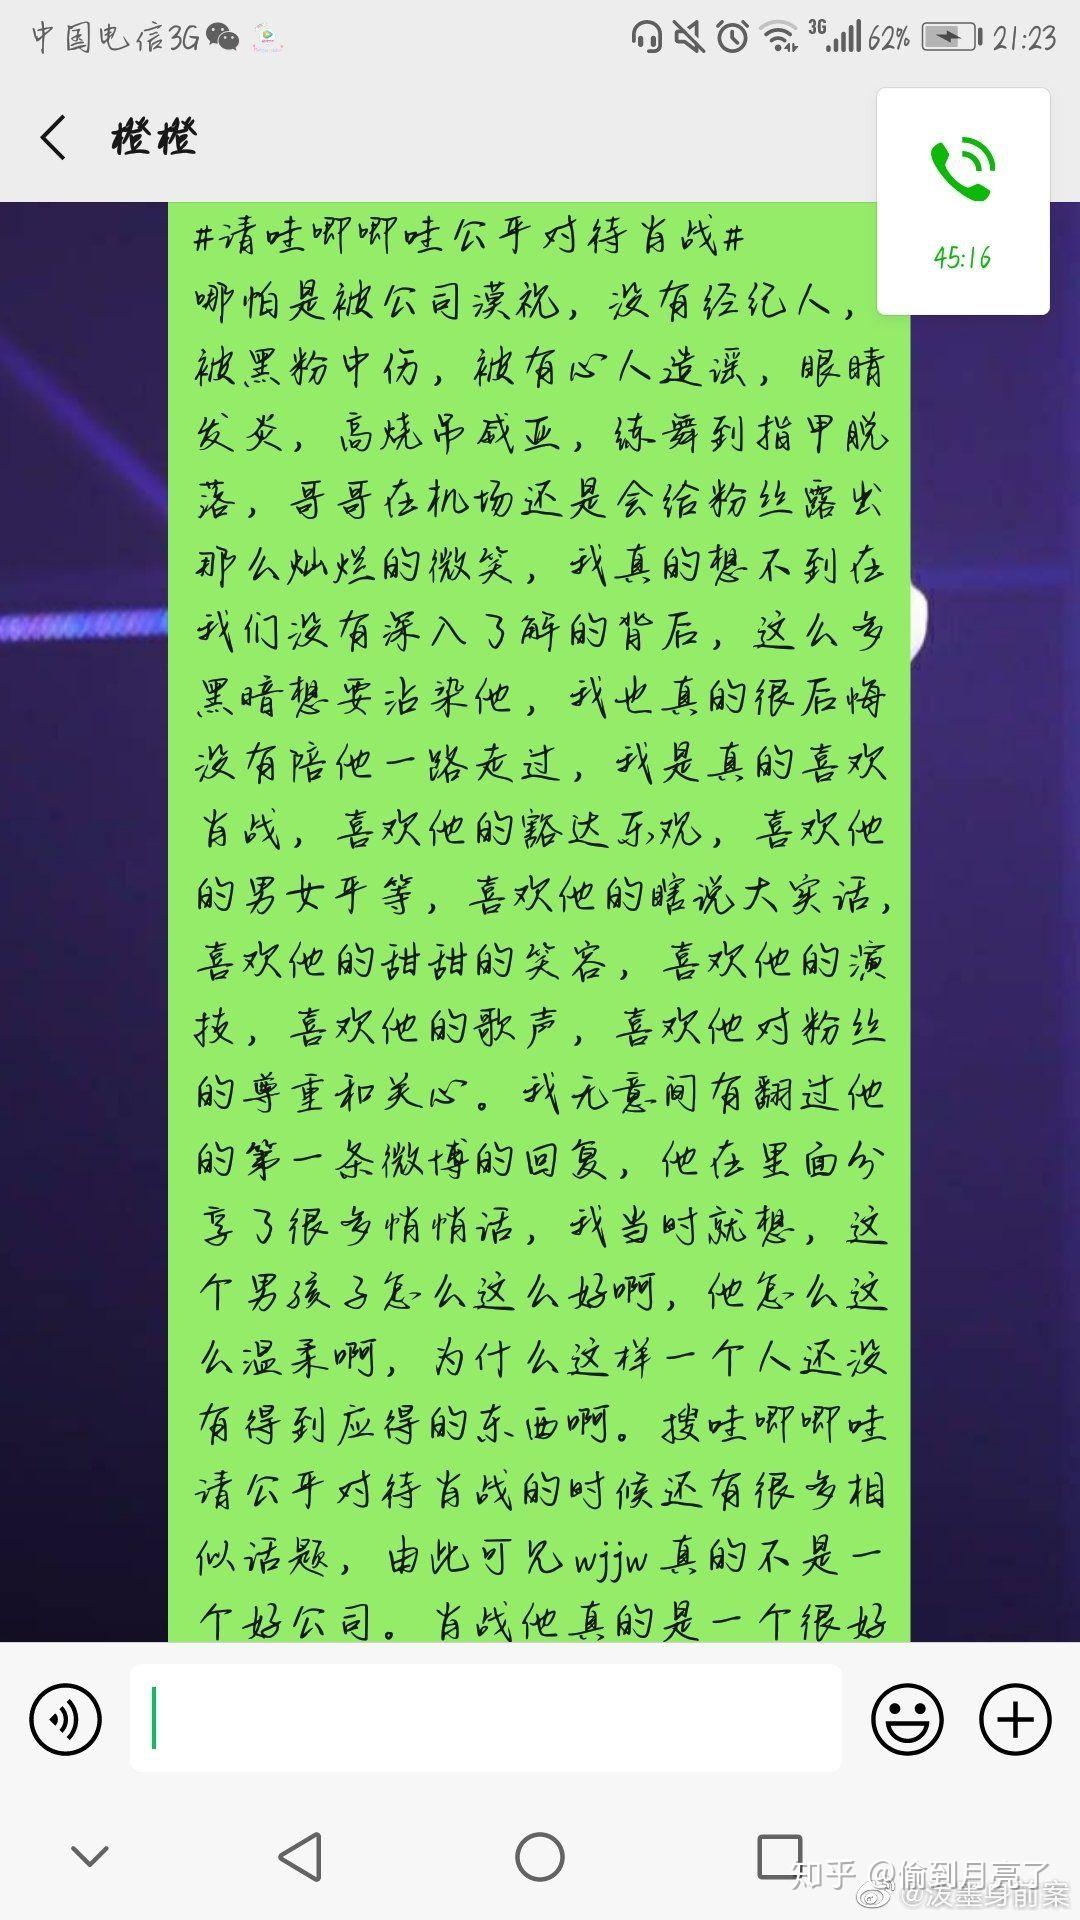 中国电信3G
3G 62% 21:23
橙橙
45:16
#请哇唧唧哇公平对待肖战#
哪怕是被公司漠视，没有经纪人，
被黑粉中伤，被有心人造谣，眼睛
发炎，高烧吊威亚，练舞到指甲脱
落，哥哥在机场还是会给粉丝露出
那么灿烂的微笑，我真的想不到在
我们没有深入了解的背后，这么多
黑暗想要沾染他，我也真的很后悔
没有陪他一路走过，我是真的喜欢
肖战，喜欢他的豁达乐观，喜欢他
的男女平等，喜欢他的瞎说大实话，
喜欢他的甜甜的笑容，喜欢他的演
技，喜欢他的歌声，喜欢他对粉丝
的尊重和关心。我无意间有翻过他
的第一条微博的回复，他在里面分
享了很多悄悄话，我当时就想，这
个男孩子怎么这么好啊，他怎么这
么温柔啊，为什么这样一个人还没
有得到应得的东西啊。搜哇唧唧哇
请公平对待肖战的时候还有很多相
似话题，由此可见wjjw真的不是一
个好公司。肖战他真的是一个很好
知乎 @偷到月亮了
@泼墨身前案